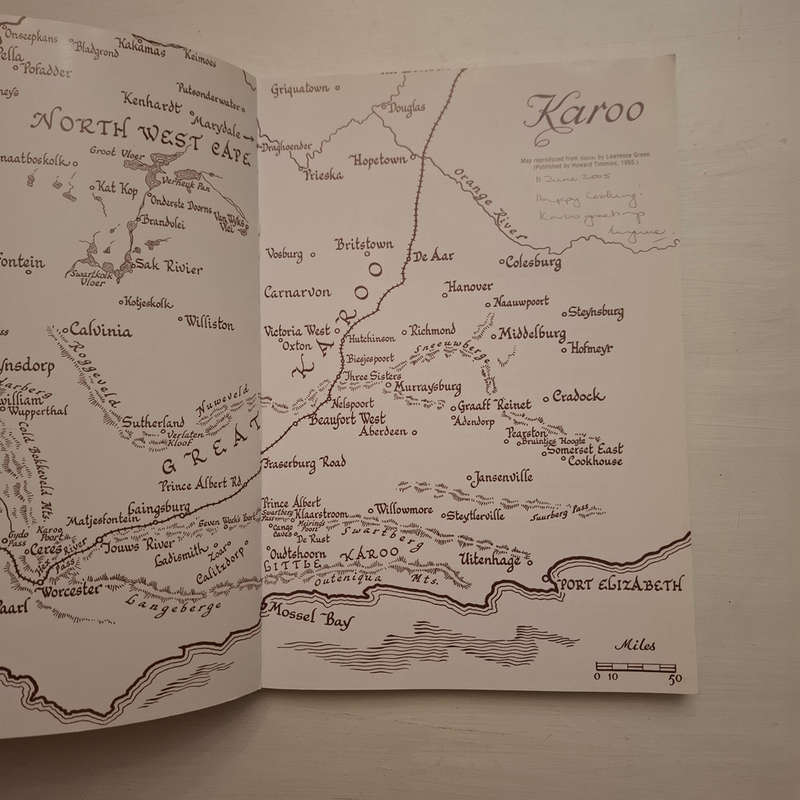 Onseepkans
Bladgrond
Kakamas
Keimoes
Pella
Pofadder
Putsonderwater
Kenhardt
Marydale
NORTH WEST CAPE
Groot Vloer
Verneuk Pan
Kat Kop
Onderste Doorns
Van Wyks
Vlei
Brandvlei
Sak Rivier
Swartkolk
Vloer
Kotjeskolk
Calvinia
Williston
Roggeveld
Nuweveld
Wupperthal
Cold Bokkeveld Mts.
Sutherland
Verlaten
Kloof
GREAT
Prince Albert Rd.
Laingsburg
Matjesfontein
Seven Weeks Poort
Karoo
Poort
Gydo
Pass
Ceres
Hex River
Pass
Touws River
Ladismith
Zoar
Calitzdorp
Worcester
Paarl
Langeberge
Griquatown
Douglas
Draghoender
Prieska
Hopetown
Orange River
Karoo
Map reproduced from Karoo by Lawrence Green
(Published by Howard Timmins, 1955.)
11 June 2005
Happy Cooking!
Karoo greetings
Vosburg
Britstown
De Aar
Colesburg
Carnarvon
Hanover
Naauwpoort
Steynsburg
KAROO
Victoria West
Hutchinson
Richmond
Middelburg
Oxton
Biesjespoort
Sneeuwberge
Hofmeyr
Three Sisters
Murraysburg
Nelspoort
Graaff Reinet
Cradock
Beaufort West
Adendorp
Aberdeen
Pearston
Bruintjes Hoogte
Somerset East
Cookhouse
Fraserburg Road
Jansenville
Prince Albert
Swartberg
Pass
Klaarstroom
Willowmore
Steytlerville
Suurberg Pass
Cango
Caves
Meirings
Poort
De Rust
Swartberg
Oudtshoorn
LITTLE KAROO
Uitenhage
Outeniqua Mts.
PORT ELIZABETH
Mossel Bay
Miles
0 10 50